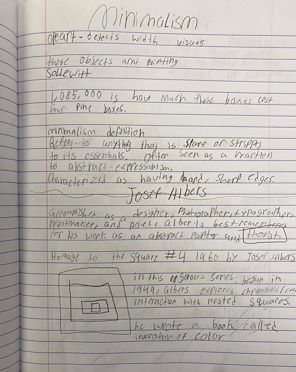 Minimalism
opeart - detects width visues
these objects arnt painting
Sollewitt
1,085,000 is how much these boxes cost
four pine boxes.
minimalism definition
Refers to anything that is spare or stripped
to its essentials, often seen as a reaction
to abstract-expressionism.
Characterized as having hard, sharp edges.
Josef Albers
Accomplished as a designer, Photographer, typographer
Printmaker, and poet, Albers is best remembered
for his work as an abstract painter and theorist
Homage to the square #4 1960 by Josef Albers
in this rigorous series, begun in
1949, Albers explored chromatic
interaction with nested squares.
he wrote a book called
interation of color